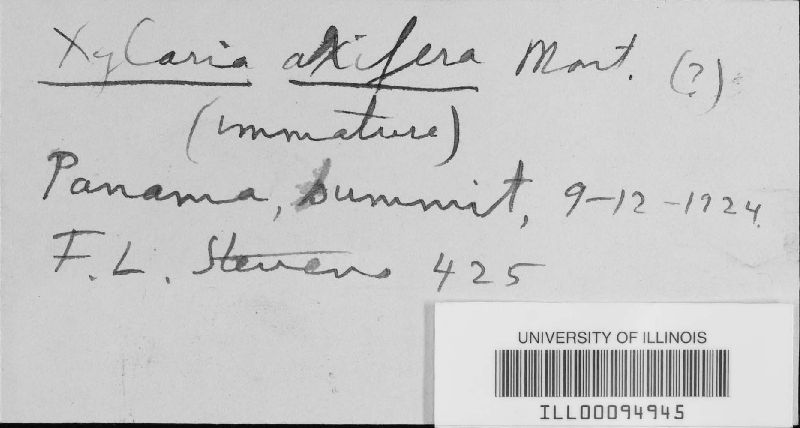 Xylaria axifera Mont. (?)
(immature)
Panama, Summit, 9-12-1924.
F. L. Stevens 425
UNIVERSITY OF ILLINOIS
ILL00094945